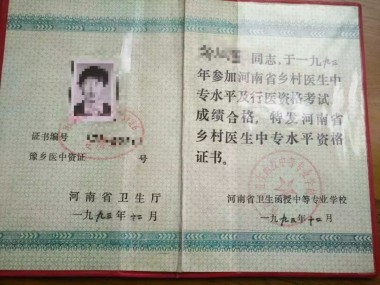 证书编号
豫乡医中资证 号
河南省卫生厅
一九九五年十二月
同志,于一九九三
年参加河南省乡村医生中
专水平及行医资格考试,
成绩合格,特发河南省
乡村医生中专水平资格
证书。
河南省卫生函授中等专业学校
一九九五年十二月